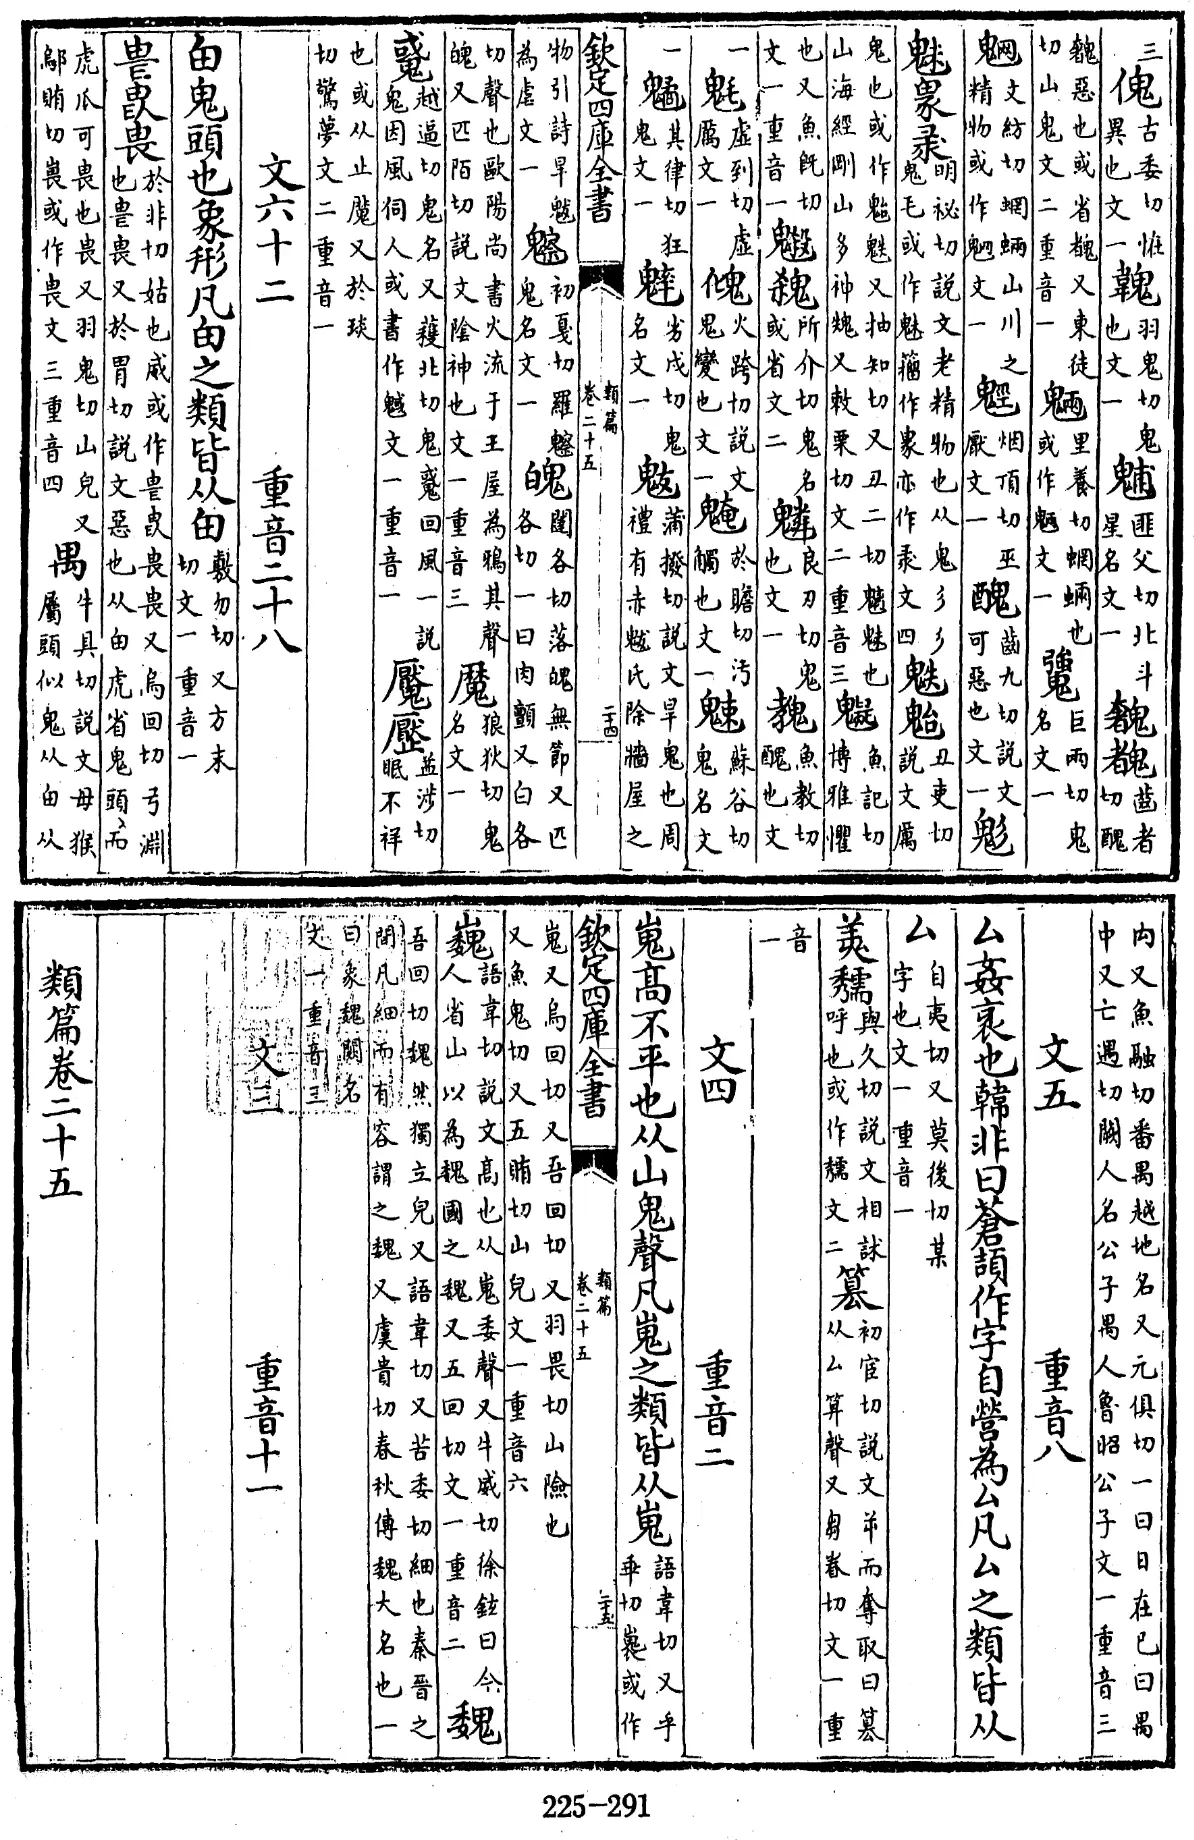 三傀古委切恠異也文一䰎羽鬼切鬼也文一䰽匪父切北斗星名文一魗䰩齒者切醜
䰩惡也或省䰩又東徒切山鬼文二重音一魎里養切蝄蜽也或作䰣文一䰱巨兩切鬼名文一
魍文紡切蝄蜽山川之精物或作䰣文一䰢烟頂切巫厭文一醜齒九切説文可惡也文一鬽
魅𢑚彔明祕切説文老精物也从鬼彡彡鬼毛或作魅籒作𢑚亦作彔文四魅䰡丑吏切説文厲
鬼也或作䰡魅又抽知切又丑二切魑魅也山海經剛山多神䰡又敕栗切文二重音三䰯魚記切博雅懼
也又魚旣切文一重音一所介切鬼名或省文二䰰良刃切鬼也文一魚教切醜也文
一䰟虛到切虛厲文一傀火跨切説文鬼變也文一䰿於贍切汚觸也文一䰧蘇谷切鬼名文
一䰬其律切狂鬼文一劣戍切鬼名文一魃蒲撥切説文旱鬼也周禮有赤魃氏除牆屋之
欽定四庫全書 類篇 卷二十五 二十四
物引詩旱魃為虐文一䰼初戞切羅䰼鬼名文一魄闥各切落魄無節又匹各切一曰肉顫又白各
切聲也歐陽尚書火流于王屋為鴉其聲魄又匹陌切説文陰神也文一重音三䰛狼狄切鬼名文一
䰥越逼切鬼名又䕶北切鬼䰥回風一説鬼因風伺人或書作魊文一重音一魘䰷益涉切眠不祥
也或从止魘又於琰切驚夢文二重音一
文六十二 重音二十八
甶鬼頭也象形凡甶之類皆从甶敷勿切又方未切文一重音一
畏於非切姑也威或作畏又烏回切弓淵也畏又於胃切説文惡也从甶虎省鬼頭而
虎爪可畏也畏又羽鬼切山皃又鄔賄切嵔或作畏文三重音四禺牛具切説文母猴屬頭似鬼从甶从
禸又魚融切番禺越地名又元俱切一曰日在巳曰禺中又亡遇切闕人名公子禺人魯昭公子文一重音三
文五 重音八
厶姦衺也韓非曰蒼頡作字自營為厶凡厶之類皆从
厶自夷切又莫後切某字也文一重音一
羑䅵與久切説文相訹呼也或作䅵文二篡初宦切説文屰而奪取曰篡从厶算聲又芻眷切文一重
音一
文四 重音二
嵬高不平也从山鬼聲凡嵬之類皆从嵬語韋切又乎乖切嵬或作
欽定四庫全書 類篇 卷二十五 二十五
嵬又烏回切又吾回切又羽畏切山險也又魚鬼切又五賄切山皃文一重音六
巍語韋切説文高也从嵬委聲又牛威切徐鉉曰今人省山以為魏國之魏又五回切文一重音二魏
吾回切魏然獨立皃又語韋切又苦委切細也秦晉之間凡細而有容謂之魏又虞貴切春秋傳魏大名也一
曰象魏闕名文一重音三
文三 重音十一
類篇卷二十五
225-291